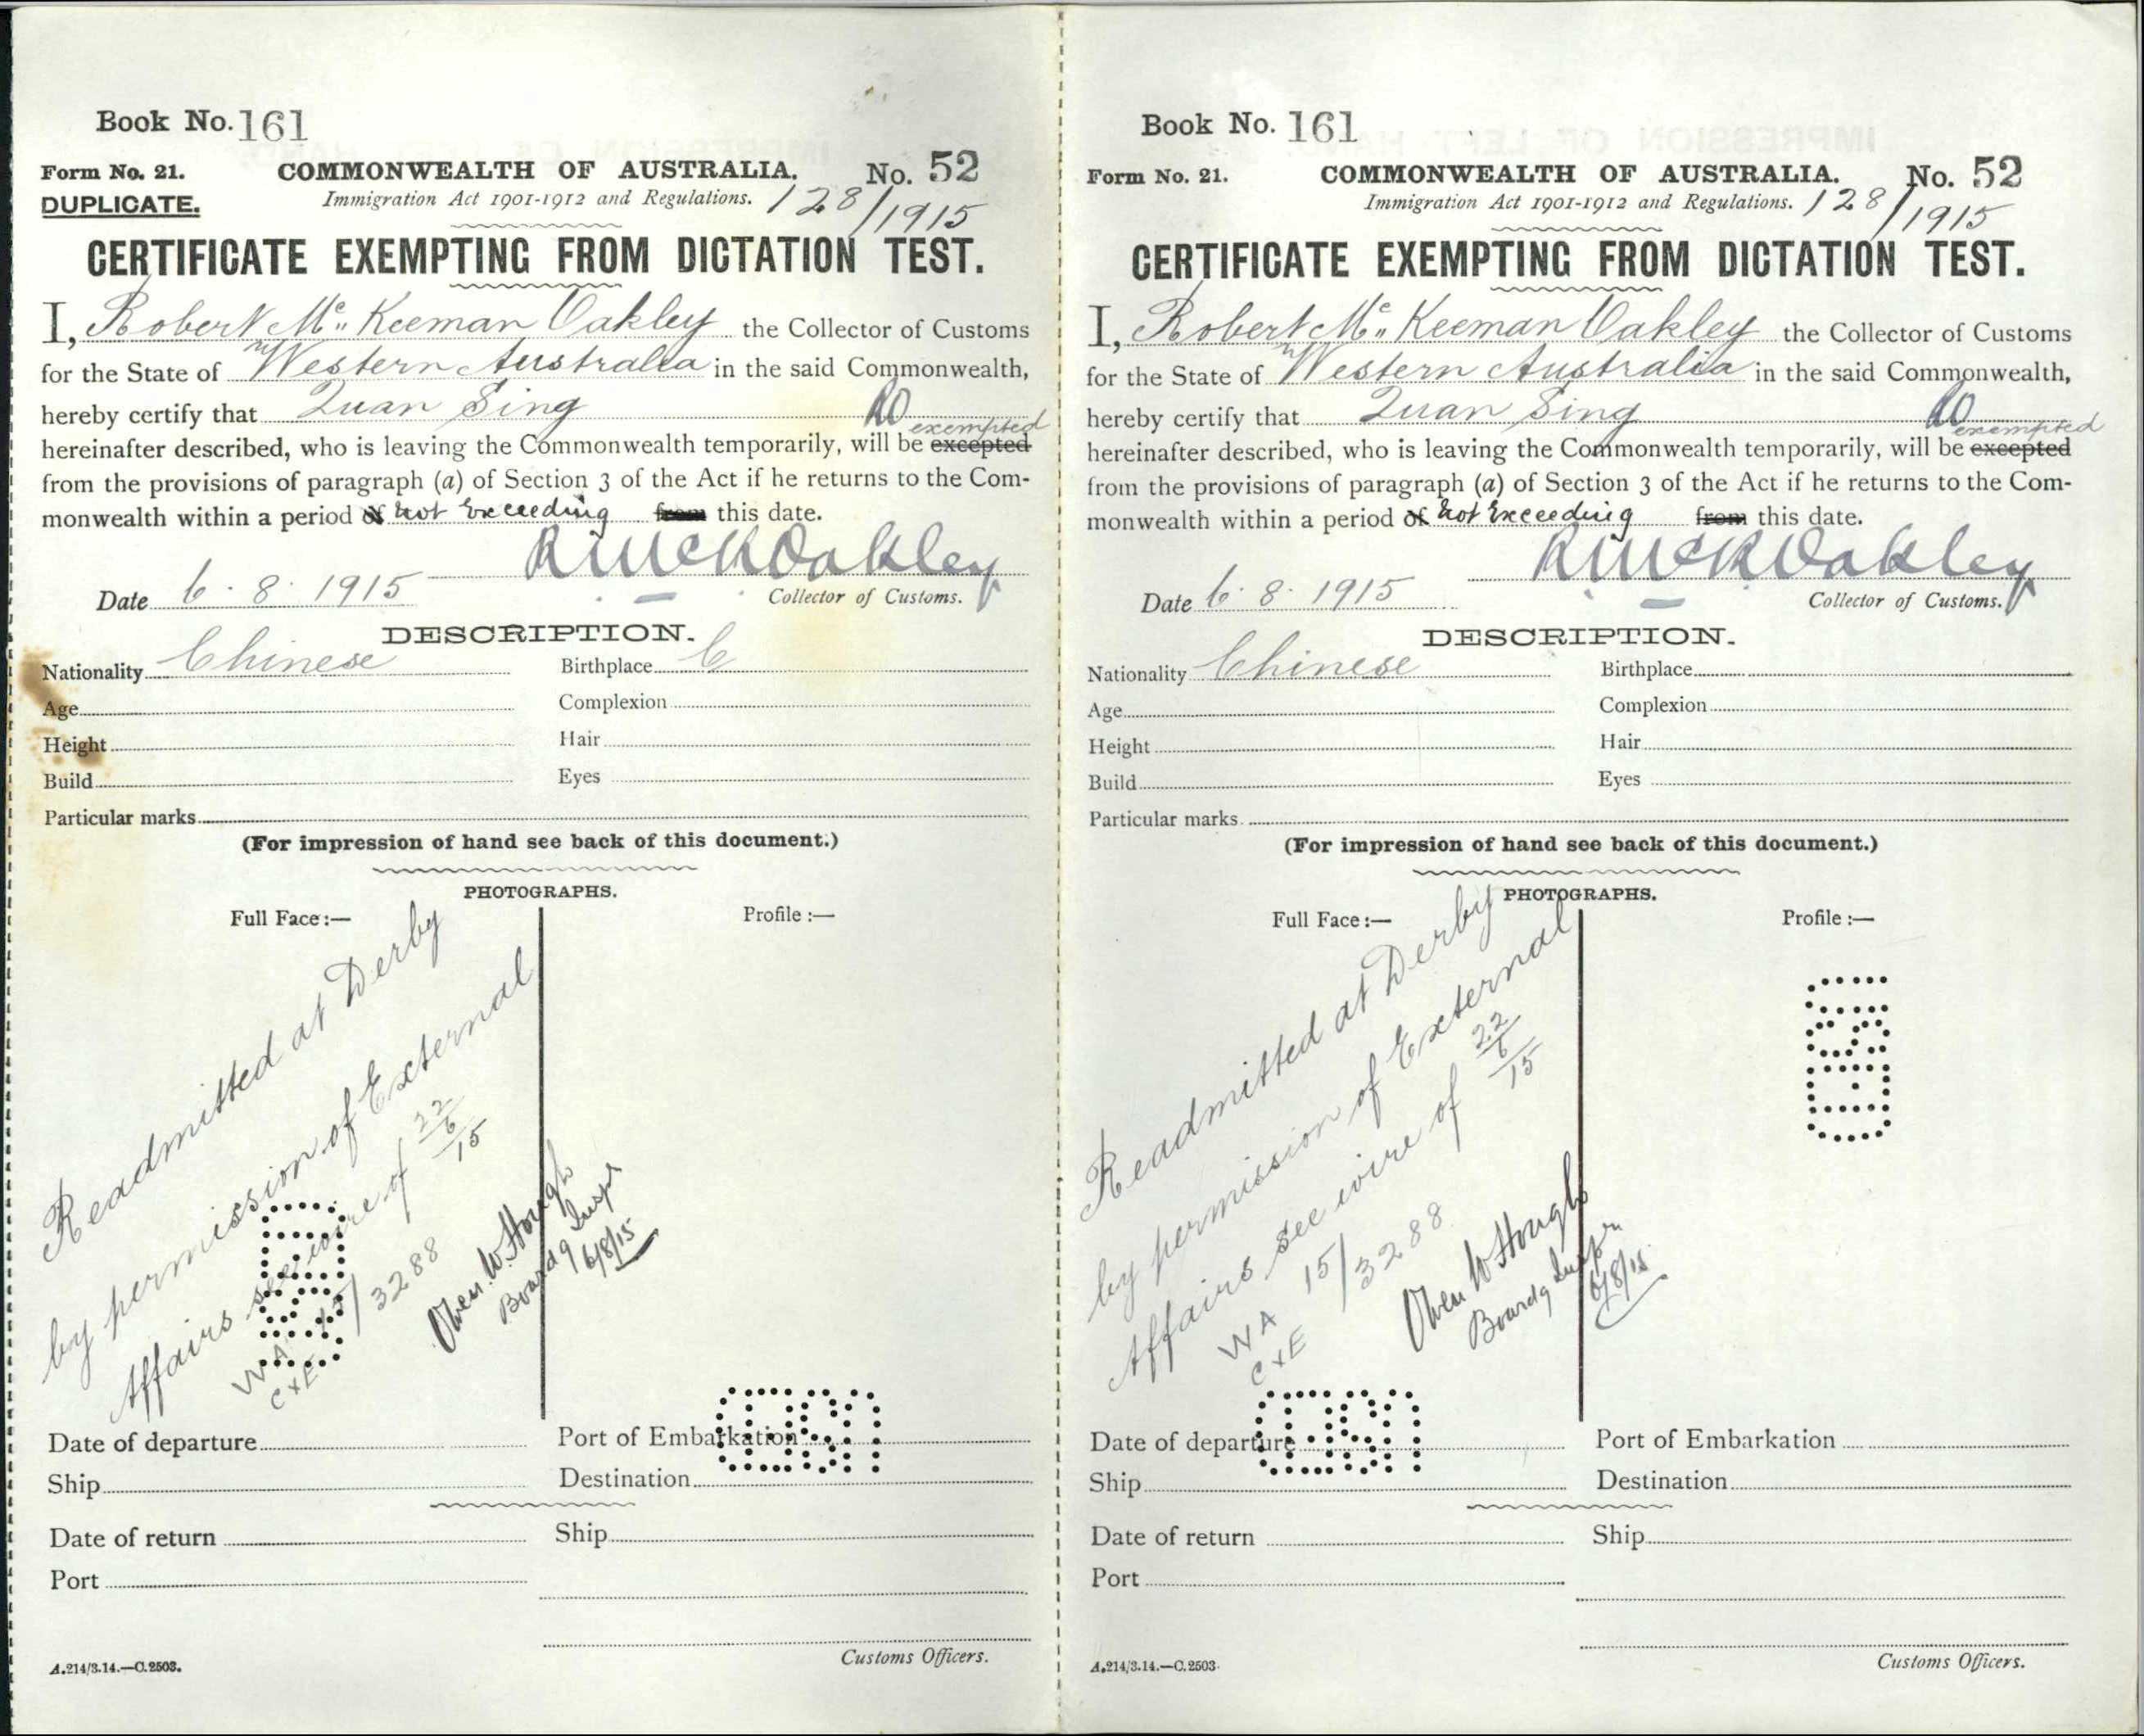 Book No. 161
Form No. 21. COMMONWEALTH OF AUSTRALIA. No. 52
DUPLICATE. Immigration Act 1901-1912 and Regulations. 128/1915
CERTIFICATE EXEMPTING FROM DICTATION TEST.
I, Robert Mc. Keeman Oakley the Collector of Customs
for the State of Western Australia in the said Commonwealth,
hereby certify that Quan Sing RO
exempted
hereinafter described, who is leaving the Commonwealth temporarily, will be excepted
from the provisions of paragraph (a) of Section 3 of the Act if he returns to the Com-
monwealth within a period of not Exceeding from this date.
RMcKOakley
Date 6.8.1915 Collector of Customs.
DESCRIPTION.
Nationality Chinese Birthplace C
Age Complexion
Height Hair
Build Eyes
Particular marks
(For impression of hand see back of this document.)
PHOTOGRAPHS.
Full Face:— Profile:—
Readmitted at Derby
by permission of External
Affairs see wire of 22/6/15
WA 15/3288
CxE
Owen W. Hough
Boardg Inspr
6/8/15
Date of departure Port of Embarkation
Ship Destination
Date of return Ship
Port
Customs Officers.
A.214/3.14.—C.2503.
Book No. 161
Form No. 21. COMMONWEALTH OF AUSTRALIA. No. 52
Immigration Act 1901-1912 and Regulations. 128/1915
CERTIFICATE EXEMPTING FROM DICTATION TEST.
I, Robert Mc. Keeman Oakley the Collector of Customs
for the State of Western Australia in the said Commonwealth,
hereby certify that Quan Sing RO
exempted
hereinafter described, who is leaving the Commonwealth temporarily, will be excepted
from the provisions of paragraph (a) of Section 3 of the Act if he returns to the Com-
monwealth within a period of not Exceeding from this date.
RMcKOakley
Date 6.8.1915 Collector of Customs.
DESCRIPTION.
Nationality Chinese Birthplace
Age Complexion
Height Hair
Build Eyes
Particular marks
(For impression of hand see back of this document.)
PHOTOGRAPHS.
Full Face:— Profile:—
Readmitted at Derby
by permission of External
Affairs see wire of 22/6/15
WA 15/3288
CxE
Owen W Hough
Boardg
6/8/15
Date of departure Port of Embarkation
Ship Destination
Date of return Ship
Port
Customs Officers.
A.214/3.14.—C.2503.